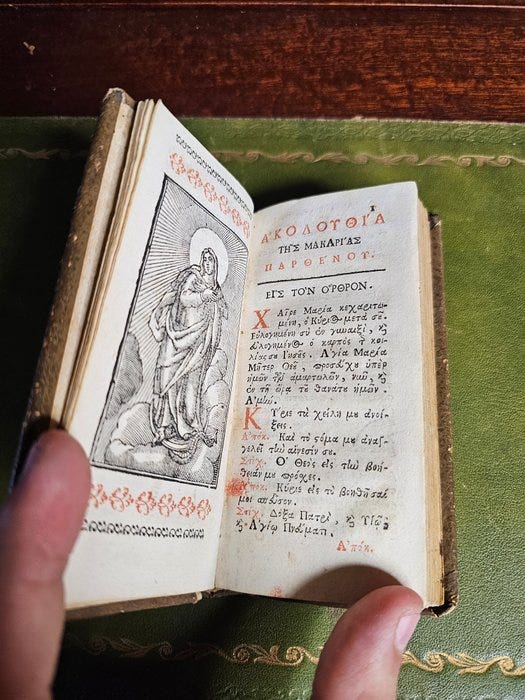 1
ἈΚΟΛΟΥΘΊΑ
ΤΗ͂Σ ΜΑΚΑΡΊΑΣ
ΠΑΡΘΈΝΟΥ.
ΕἸΣ ΤῸΝ ὌΡΘΡΟΝ.
Χαῖρε Μαρία κεχαριτω-
μένη, ὁ Κύριος μετὰ σῦ.
Εὐλογημένη σὺ ἐν γυναιξὶ, ϗ
εὐλογημένος ὁ καρπὸς τ κοι-
λίας συ Ἰησῦς. Ἁγία Μαρία
Μῆτερ Θεῦ, πρόσευχυ ὑπὲρ
ἡμῶν τῶν ἁμαρτωλῶν, νῦν, ϗ
ἐν τῇ ὥρᾳ τῦ θανάτυ ἡμῶν.
Ἀμήν.
Κύριε τὰ χείλη μυ ἀνοί-
ξεις.
Ἀπόκ. Καὶ τὸ στόμα μυ ἀναγ-
γελεῖ τὴν αἴνεσίν συ.
Στίχ. Ὁ Θεὸς εἰς τὴν βοή-
θειάν μυ πρόσχες.
Ἀπόκ. Κύριε εἰς τὸ βοηθῆσαί
μοι σπεῦσον.
Στίχ. Δόξα Πατρὶ, ϗ Υἱῷ,
ϗ Ἁγίῳ Πνεύματι.
Ἀπόκ.